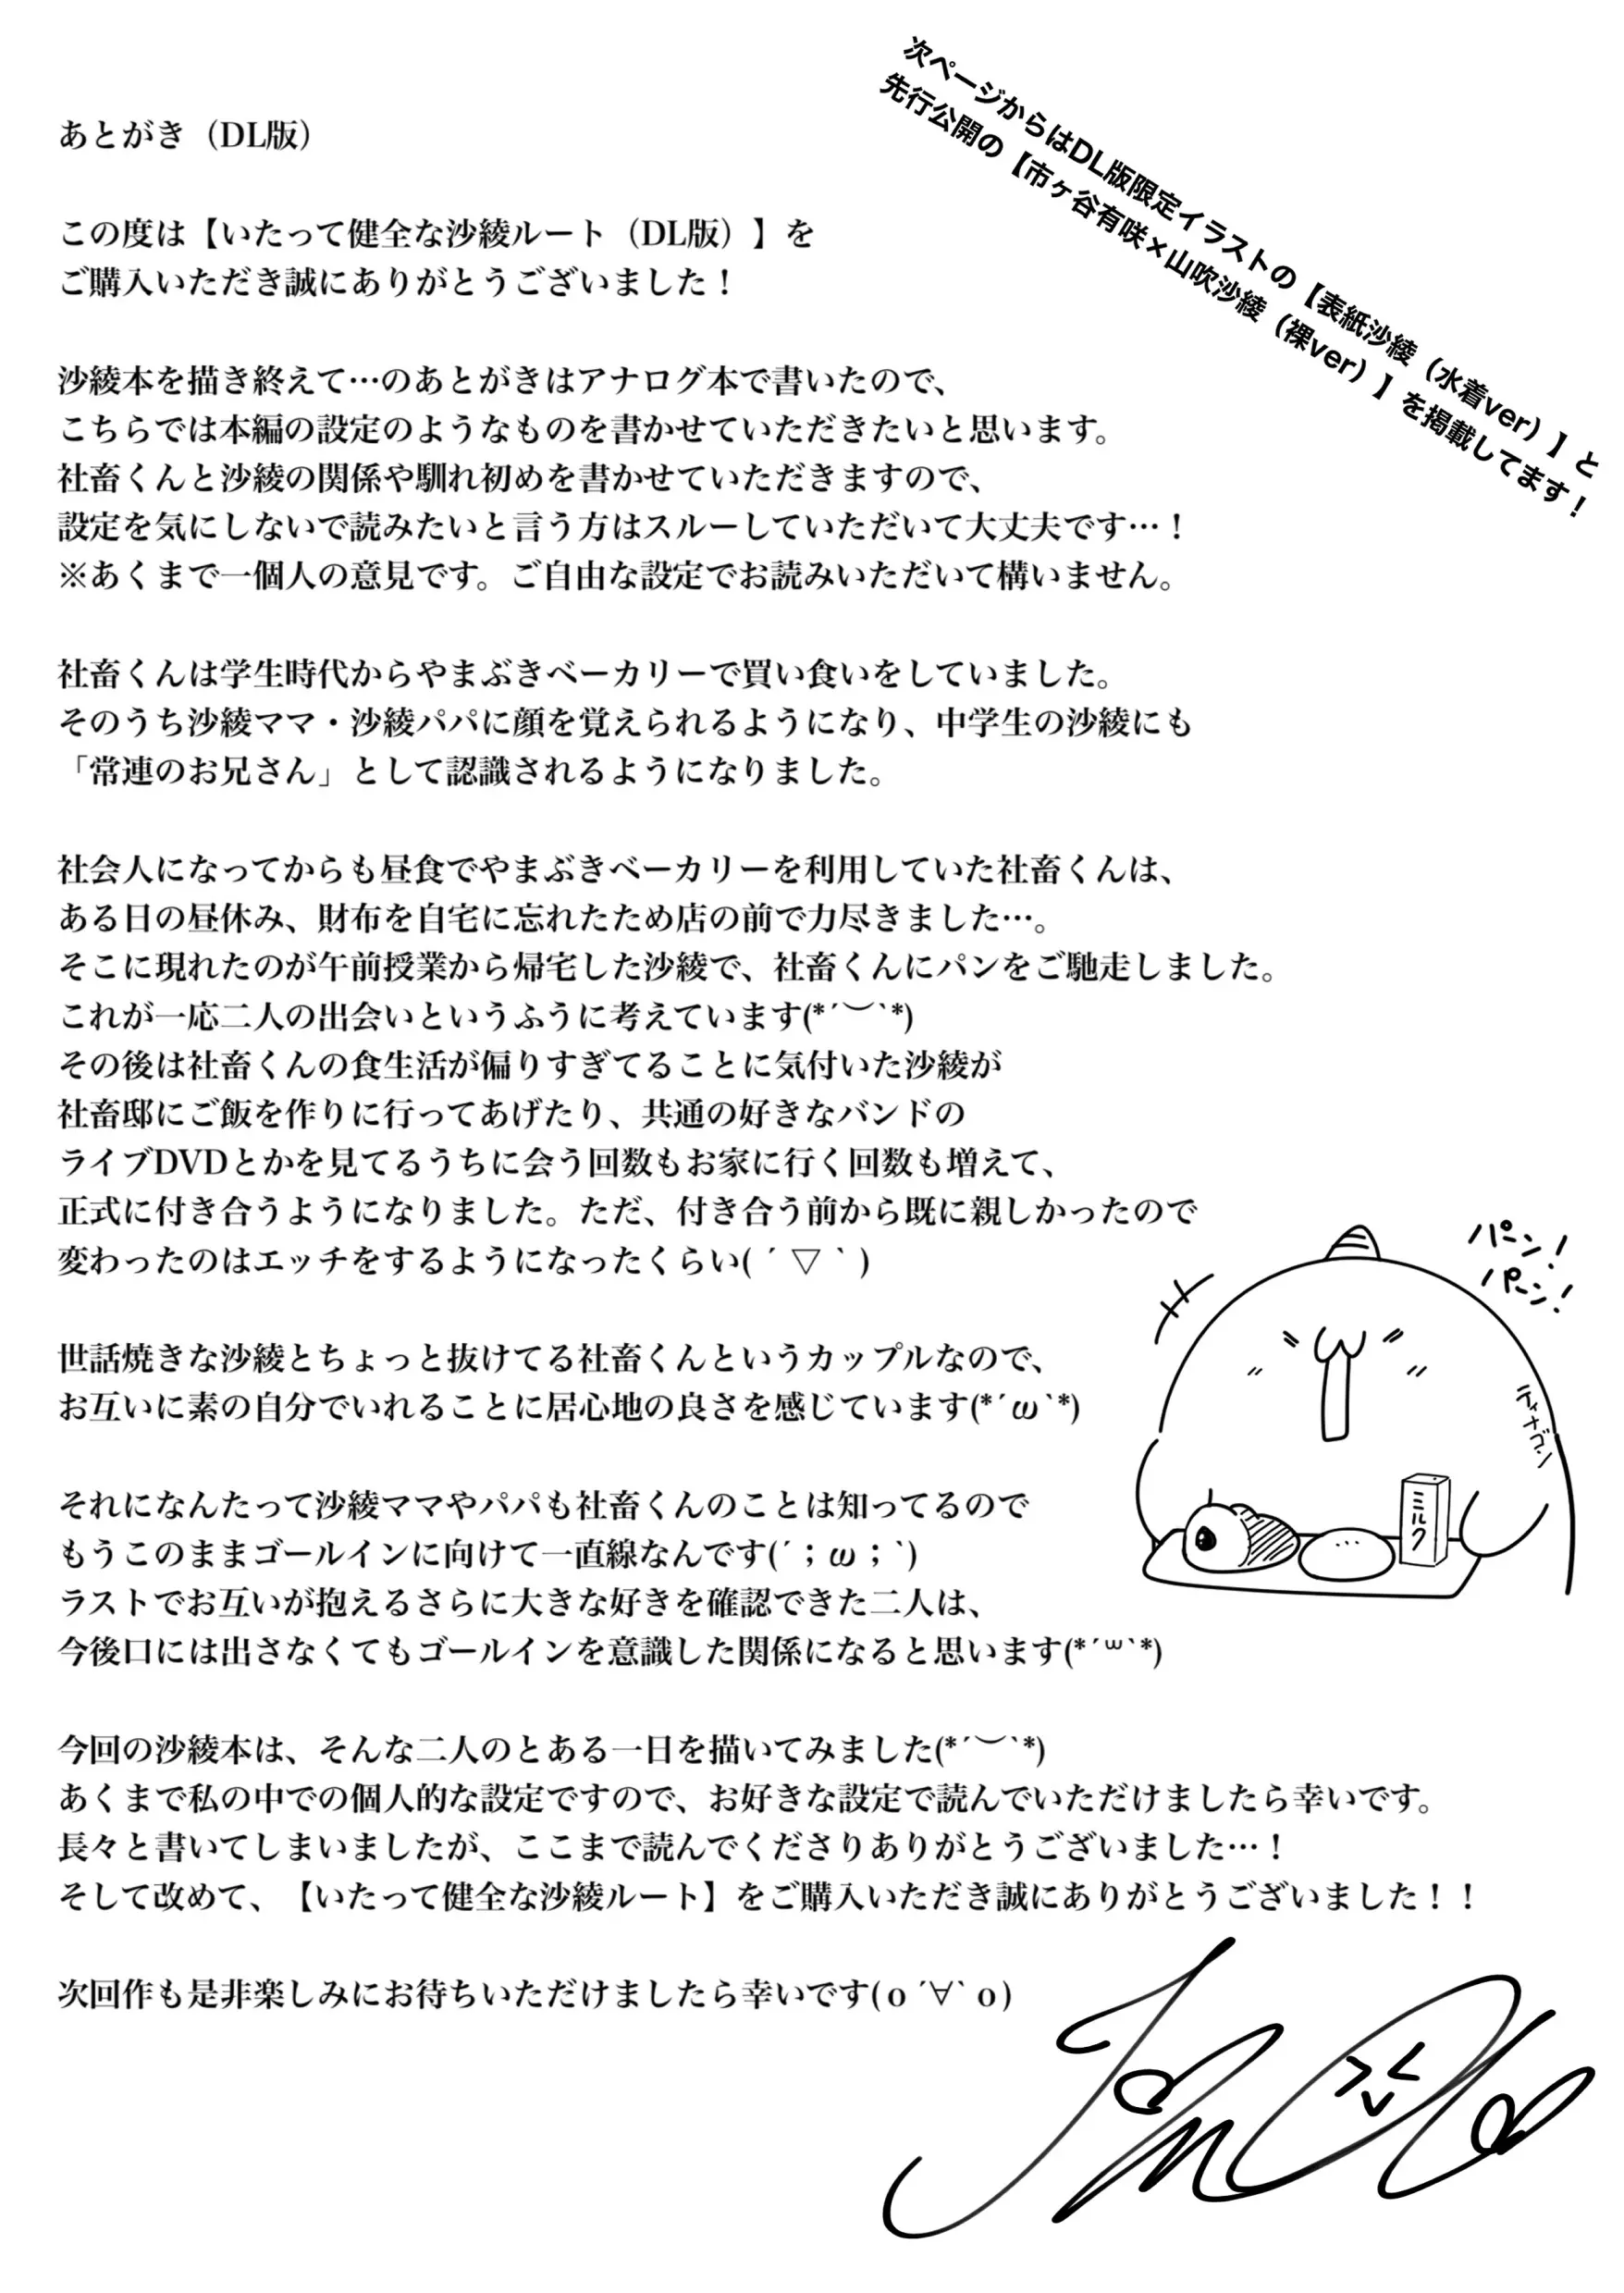 次ページからはDL版限定イラストの【表紙沙綾（水着ver）】と
先行公開の【市ヶ谷有咲×山吹沙綾（裸ver）】を掲載してます！
あとがき（DL版）
この度は【いたって健全な沙綾ルート（DL版）】を
ご購入いただき誠にありがとうございました！
沙綾本を描き終えて…のあとがきはアナログ本で書いたので、
こちらでは本編の設定のようなものを書かせていただきたいと思います。
社畜くんと沙綾の関係や馴れ初めを書かせていただきますので、
設定を気にしないで読みたいと言う方はスルーしていただいて大丈夫です…！
※あくまで一個人の意見です。ご自由な設定でお読みいただいて構いません。
社畜くんは学生時代からやまぶきベーカリーで買い食いをしていました。
そのうち沙綾ママ・沙綾パパに顔を覚えられるようになり、中学生の沙綾にも
「常連のお兄さん」として認識されるようになりました。
社会人になってからも昼食でやまぶきベーカリーを利用していた社畜くんは、
ある日の昼休み、財布を自宅に忘れたため店の前で力尽きました…。
そこに現れたのが午前授業から帰宅した沙綾で、社畜くんにパンをご馳走しました。
これが一応二人の出会いというふうに考えています(*´︶`*)
その後は社畜くんの食生活が偏りすぎてることに気付いた沙綾が
社畜邸にご飯を作りに行ってあげたり、共通の好きなバンドの
ライブDVDとかを見てるうちに会う回数もお家に行く回数も増えて、
正式に付き合うようになりました。ただ、付き合う前から既に親しかったので
変わったのはエッチをするようになったくらい( ´ ▽ ` )
世話焼きな沙綾とちょっと抜けてる社畜くんというカップルなので、
お互いに素の自分でいれることに居心地の良さを感じています(*´ω`*)
それになんたって沙綾ママやパパも社畜くんのことは知ってるので
もうこのままゴールインに向けて一直線なんです(´；ω；`)
ラストでお互いが抱えるさらに大きな好きを確認できた二人は、
今後口には出さなくてもゴールインを意識した関係になると思います(*´꒳`*)
今回の沙綾本は、そんな二人のとある一日を描いてみました(*´︶`*)
あくまで私の中での個人的な設定ですので、お好きな設定で読んでいただけましたら幸いです。
長々と書いてしまいましたが、ここまで読んでくださりありがとうございました…！
そして改めて、【いたって健全な沙綾ルート】をご購入いただき誠にありがとうございました！！
次回作も是非楽しみにお待ちいただけましたら幸いです(о´∀`о)
パン！
パーン！
ティナゴン
ミルク